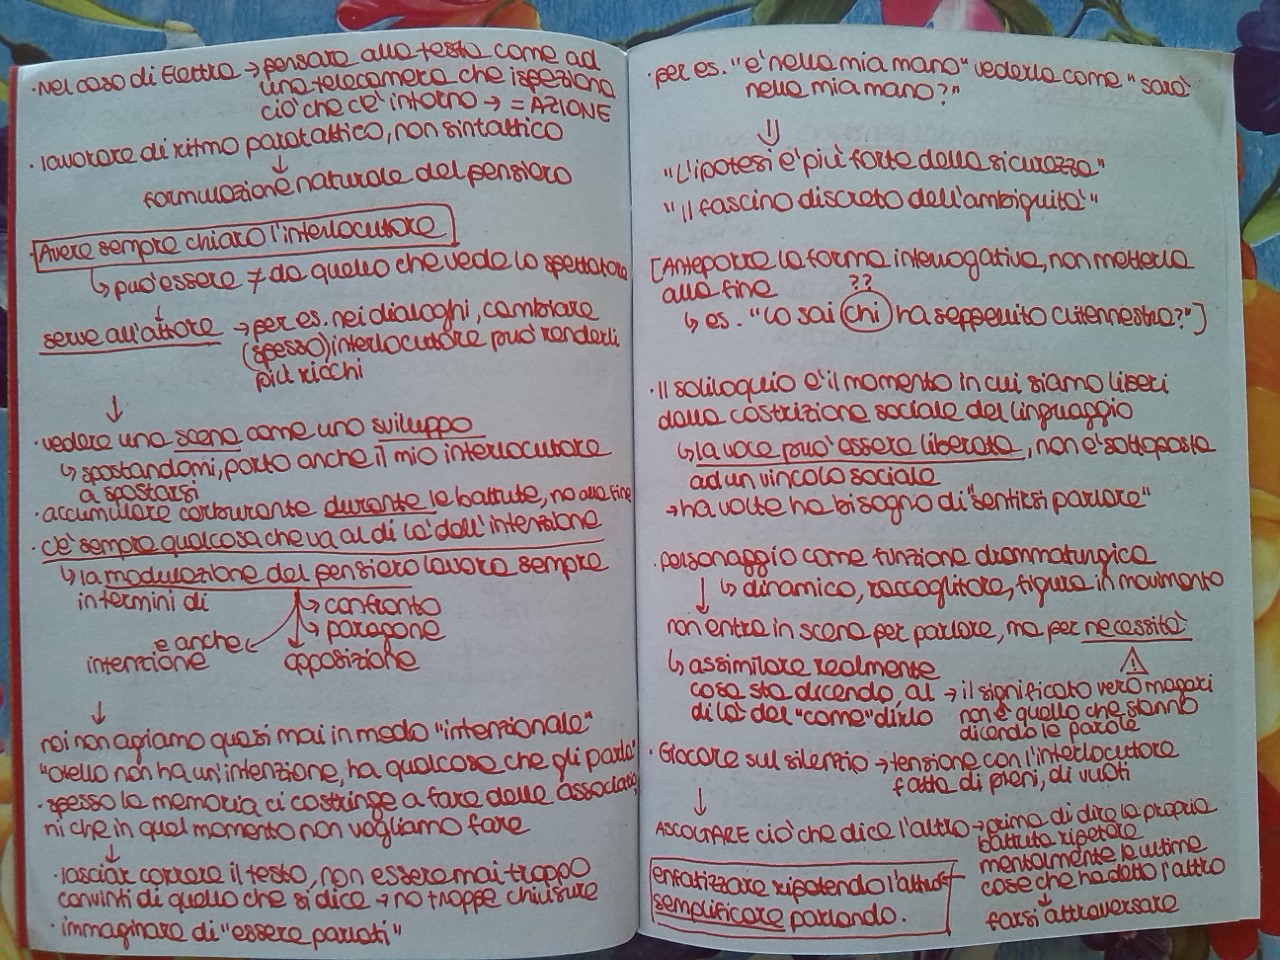 · Nel caso di Elettra → pensare alla testa come ad
una telecamera che ispeziona
ciò che c'è intorno → = AZIONE
· lavorare di ritmo paratattico, non sintattico
↓
formulazione naturale del pensiero
· Avere sempre chiaro l'interlocutore
↳ può essere ≠ da quello che vede lo spettatore
↓
serve all'attore → per es. nei dialoghi, cambiare
(spesso) interlocutore può renderli
più ricchi
↓
· vedere una scena come uno sviluppo
↳ spostandomi, porto anche il mio interlocutore
a spostarsi
· accumulare carburante durante le battute, no alla fine
· c'è sempre qualcosa che va al di là dell'intenzione
↳ la modulazione del pensiero lavora sempre
in termini di
→ confronto
→ paragone
opposizione
e anche
intenzione
↓
noi non agiamo quasi mai in modo "intenzionale"
"Otello non ha un'intenzione, ha qualcosa che gli parla"
· spesso la memoria ci costringe a fare delle associazio
ni che in quel momento non vogliamo fare
↓
· lasciar correre il testo, non essere mai troppo
convinti di quello che si dice → no troppe chiusure
· immaginare di "essere parlati"
· per es. "è nella mia mano" vederla come "sarà
nella mia mano?"
⇓
"L'ipotesi è più forte della sicurezza"
"Il fascino discreto dell'ambiguità"
[Anteporre la forma interrogativa, non metterla
alla fine
??
↳ es. "Lo sai chi ha seppellito Clitennestra?"]
· Il soliloquio è il momento in cui siamo liberi
dalla costrizione sociale del linguaggio
↳ la voce può essere liberata, non è sottoposta
ad un vincolo sociale
→ ha volte ha bisogno di "sentirsi parlare"
· personaggio come funzione drammaturgica
↓ ↳ dinamico, raccoglitore, figura in movimento
non entra in scena per parlare, ma per necessità
!
↳ assimilare realmente
cosa sta dicendo, al → il significato vero magari
di là del "come" dirlo non è quello che stanno
dicendo le parole
· Giocare sul silenzio → tensione con l'interlocutore
fatta di pieni, di vuoti
↓
ASCOLTARE ciò che dice l'altro → prima di dire la propria
battuta ripetere
mentalmente le ultime
cose che ha detto l'altro
↓
farsi attraversare
enfatizzare ripetendo l'altro
semplificare parlando.